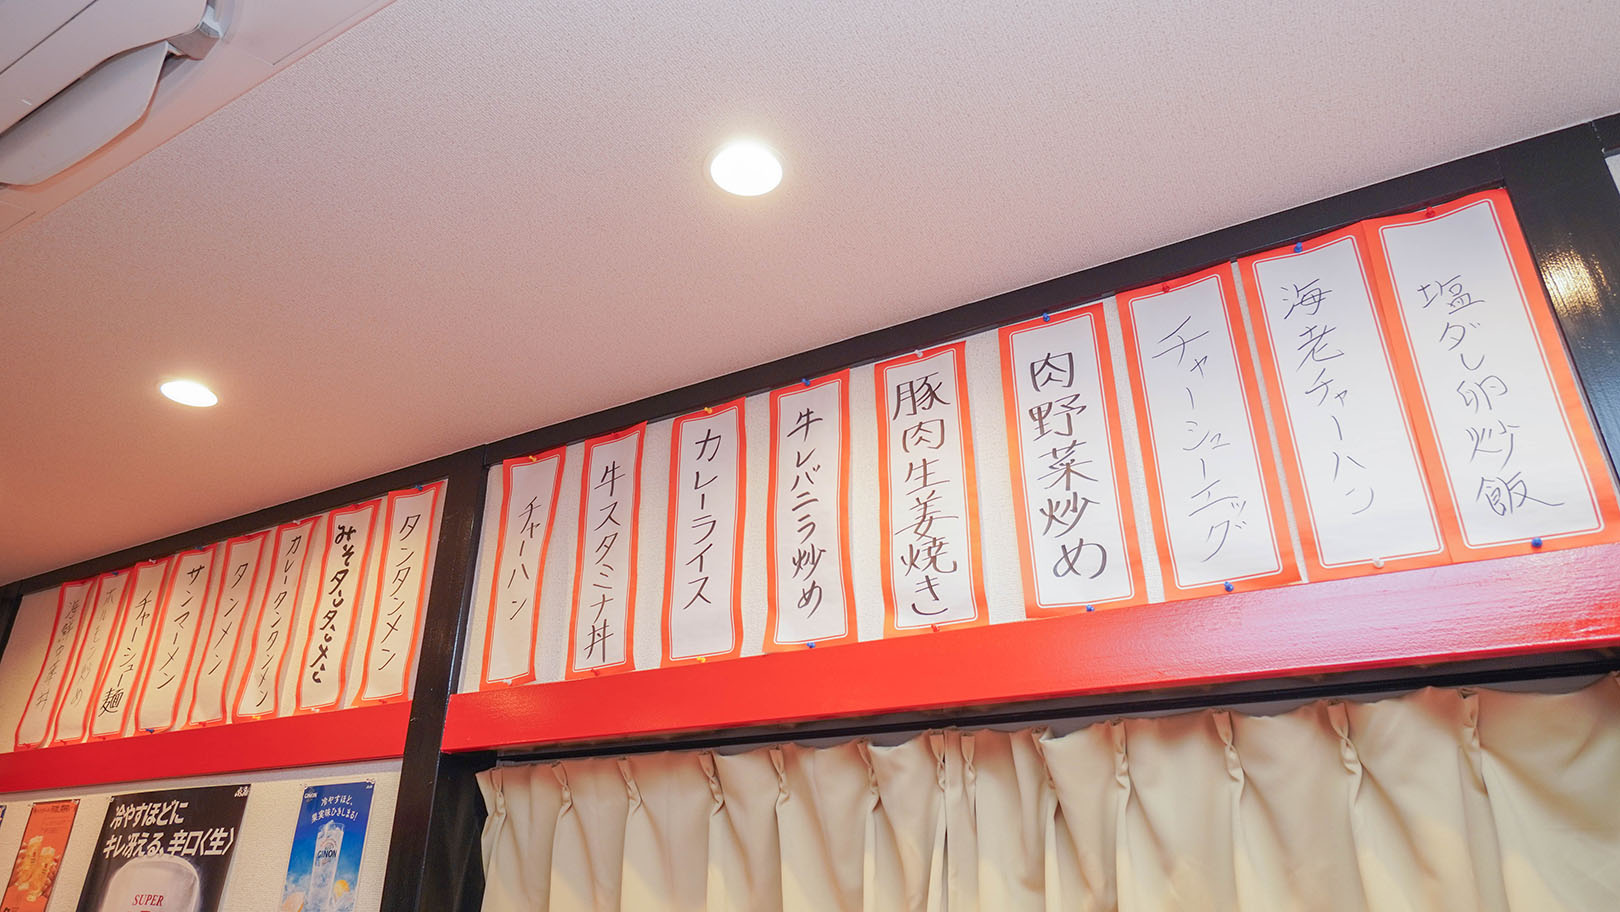 塩ダレ卵炒飯
海老チャーハン
チャーシューエッグ
肉野菜炒め
豚肉生姜焼き
牛レバニラ炒め
カレーライス
牛スタミナ丼
チャーハン
タンタンメン
みそタンタンメン
カレータンタンメン
タンメン
サンマーメン
チャーシュー麺
ホルモン炒め
冷やすほどに
キレ冴える、辛口〈生〉
SUPER
GINON
冷やすほど、
果実味ひきしまる!
GINON